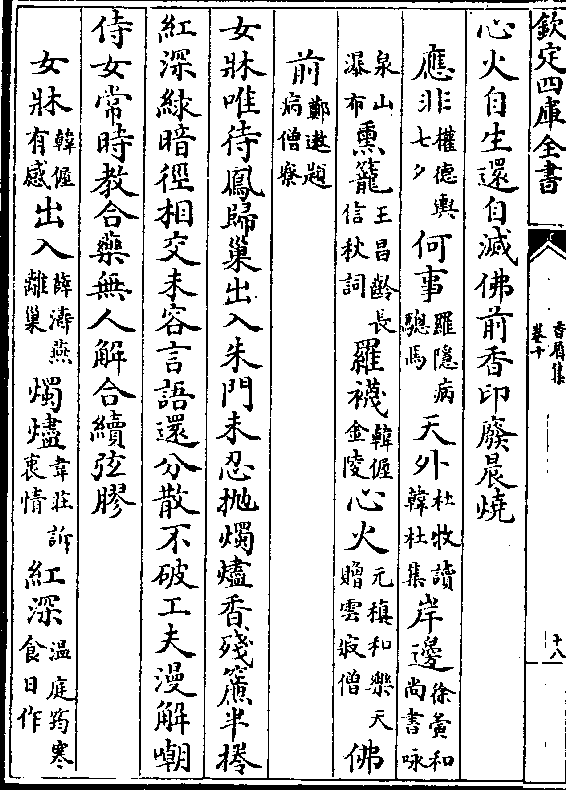 欽定四庫全書
香屑集
卷十
十八
心火自生還自滅佛前香印廢晨燒
應非權德輿七夕何事羅隱病驄馬天外杜牧讀韓杜集岸邊徐夤和尚書咏
泉山瀑布熏籠王昌齡長信秋詞羅襪韓偓金陵心火元稹和樂天贈雲寂僧佛
前鄭遨題病僧寮
女牀唯待鳳歸巢出入朱門未忍拋燭燼香殘簾半捲
紅深綠暗徑相交未容言語還分散不破工夫漫解嘲
侍女常時教合藥無人解合續弦膠
女牀韓偓有感出入薛濤燕離巢燭燼韋莊訴衷情紅深溫庭筠寒食日作